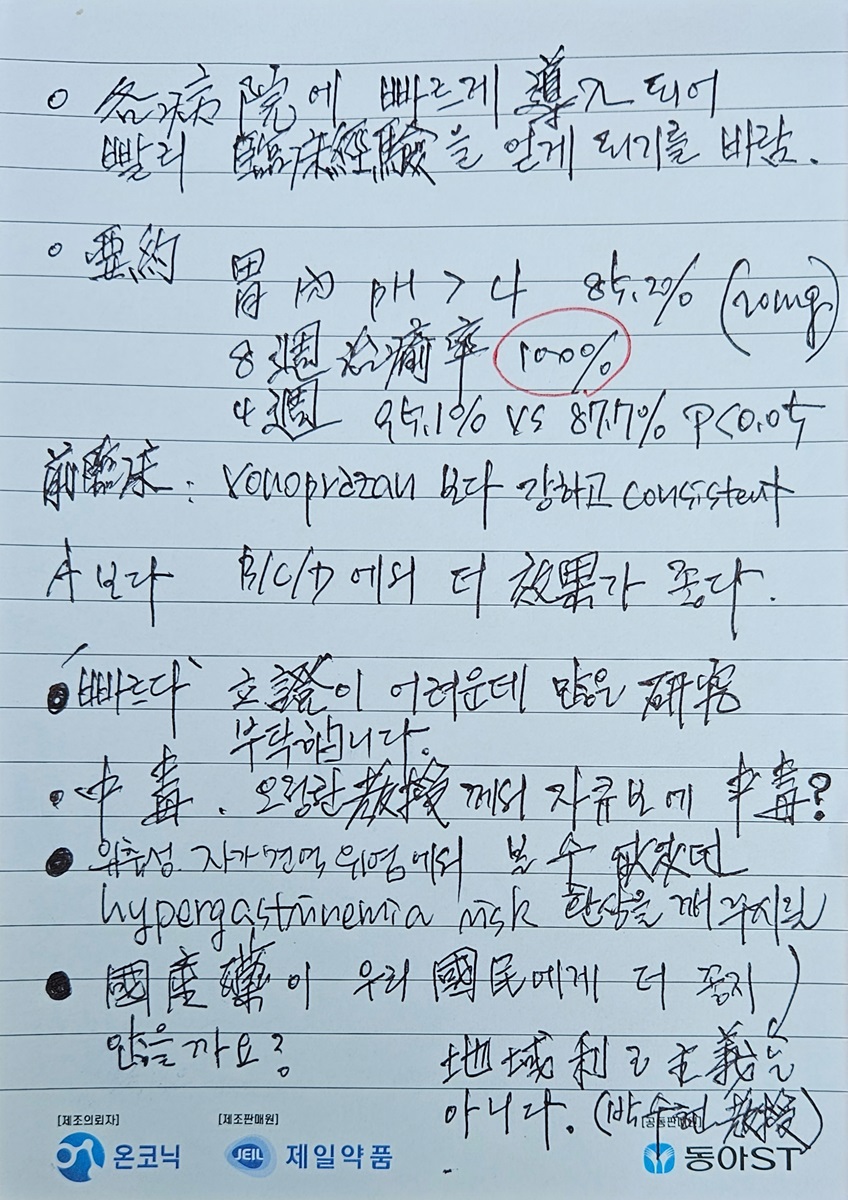 ○ 各病院에 빠르게 導入 되어
빨리 臨床經驗을 얻게 되기를 바람.
○ 要約 胃內 pH > 4 85.2% (20mg)
8週 治癒率 100%
4週 95.1% vs 87.7% P<0.05
前臨床 : vonoprazan 보다 강하고 consistent
A 보다 B/C/D 에의 더 效果가 좋다.
● '빠르다' 立證이 어려운데 많은 硏究
부탁합니다.
• 中毒. 오정환 敎授께의 자큐보에 中毒?
● 위축성. 자가면역 위염에의 볼 수 없었던
hypergastrinemia risk 환상을 깨 주시길
● 國産藥이 우리 國民에게 더 좋지
않을까요?
地域利己主義는
아니다. (박 敎授)
[제조의뢰자] [제조판매원] [공동판매원]
온코닉 JEIL 제일약품 동아ST